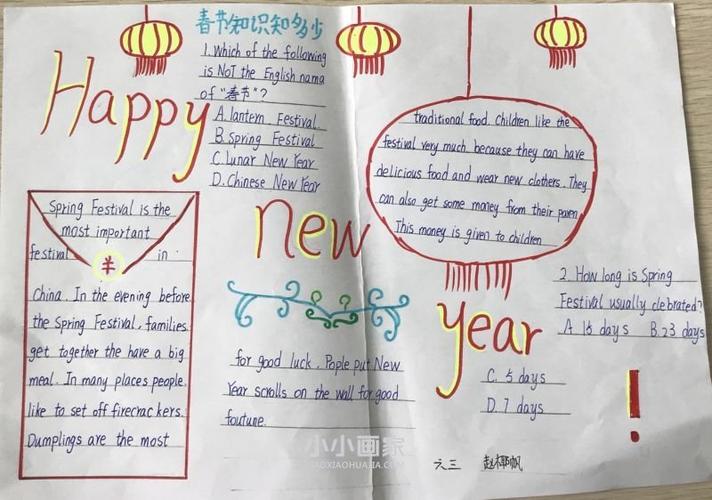 春节知识知多少
1. Which of the following
is NoT the English nama
of "春节"?
A. lantern Festival.
B. Spring Festival
C. Lunar New Year
D. Chinese New Year
Happy
new
year
!
Spring Festival is the
most important
festival in
¥
China. In the evening before
the Spring Festival, families
get together the have a big
meal. In many places people
like to set off firecrackers.
Dumplings are the most
traditional food. Children like the
festival very much because they can have
delicious food and wear new clothers. They
can also get some money from their paren
This money is given to children
for good luck. Pople put New
Year scrolls on the wall for good
foutune.
2. How long is Spring
Festival usually clebrated?
A. 18 days B. 23 days
C. 5 days
D. 7 days
小小画家
XIAOXIAOHUAJIA.COM
六三